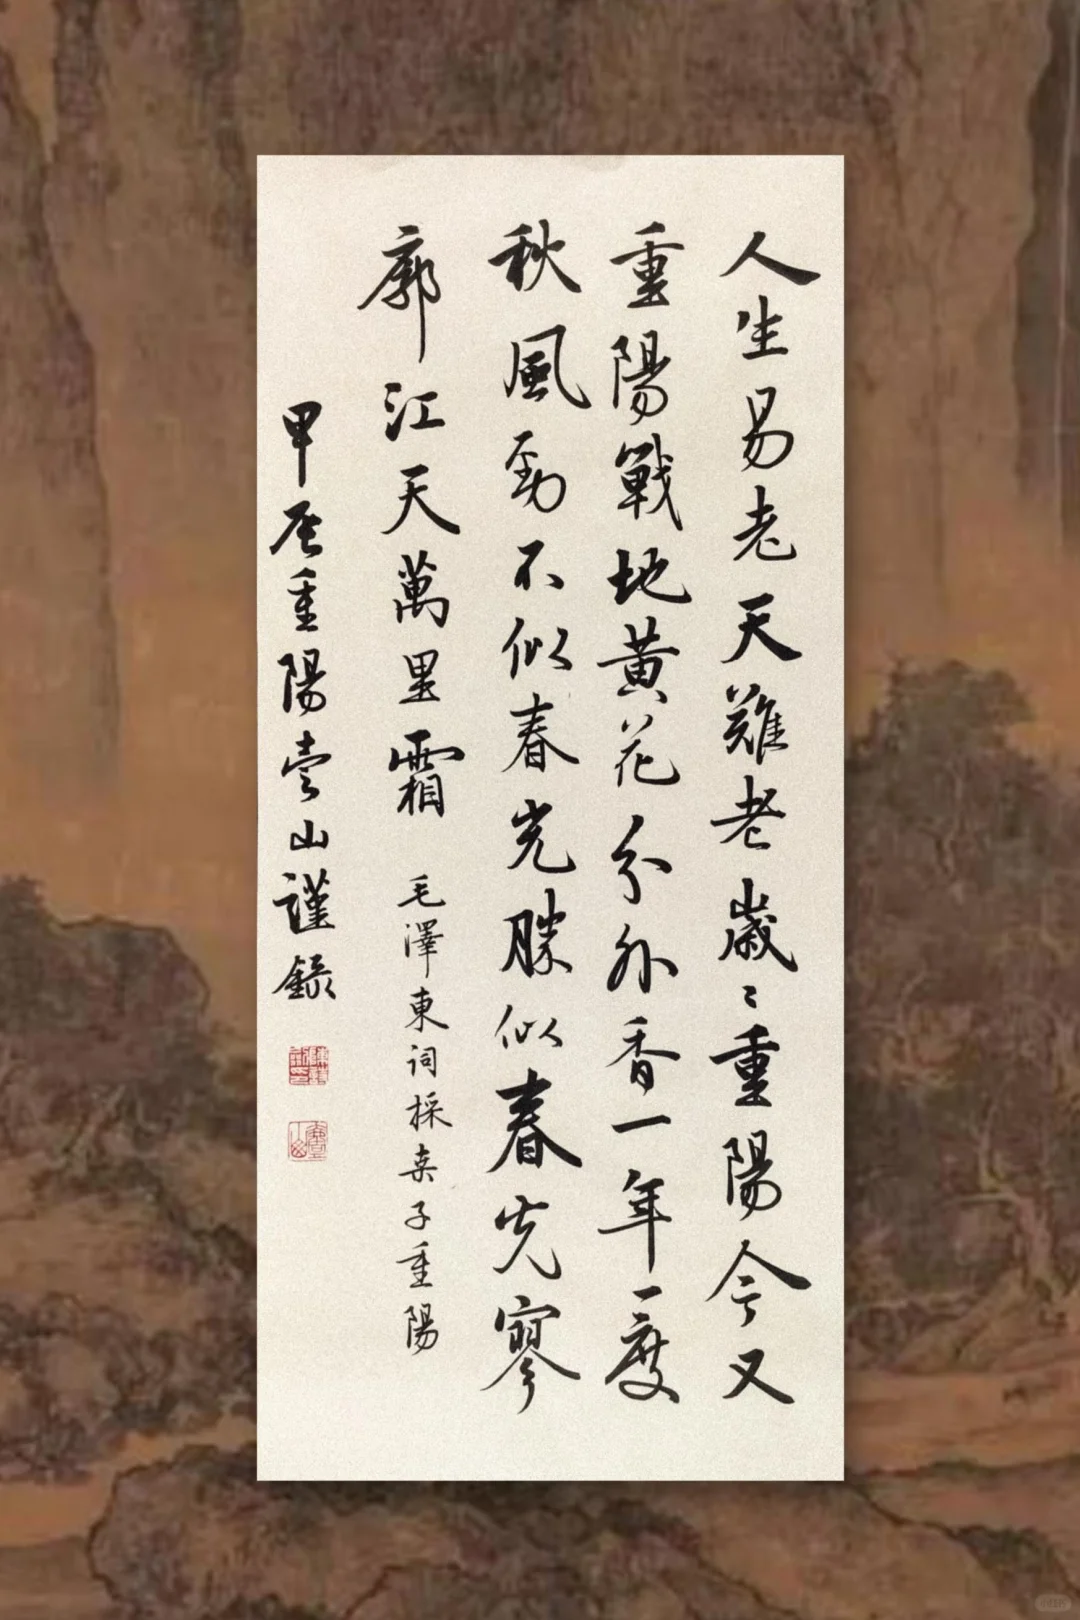 人生易老天難老歲〻重陽今又
重陽戰地黃花分外香一年一度
秋風勁不似春光勝似春光寥
廓江天萬里霜
毛澤東詞採桑子重陽
甲辰重陽壺山謹錄